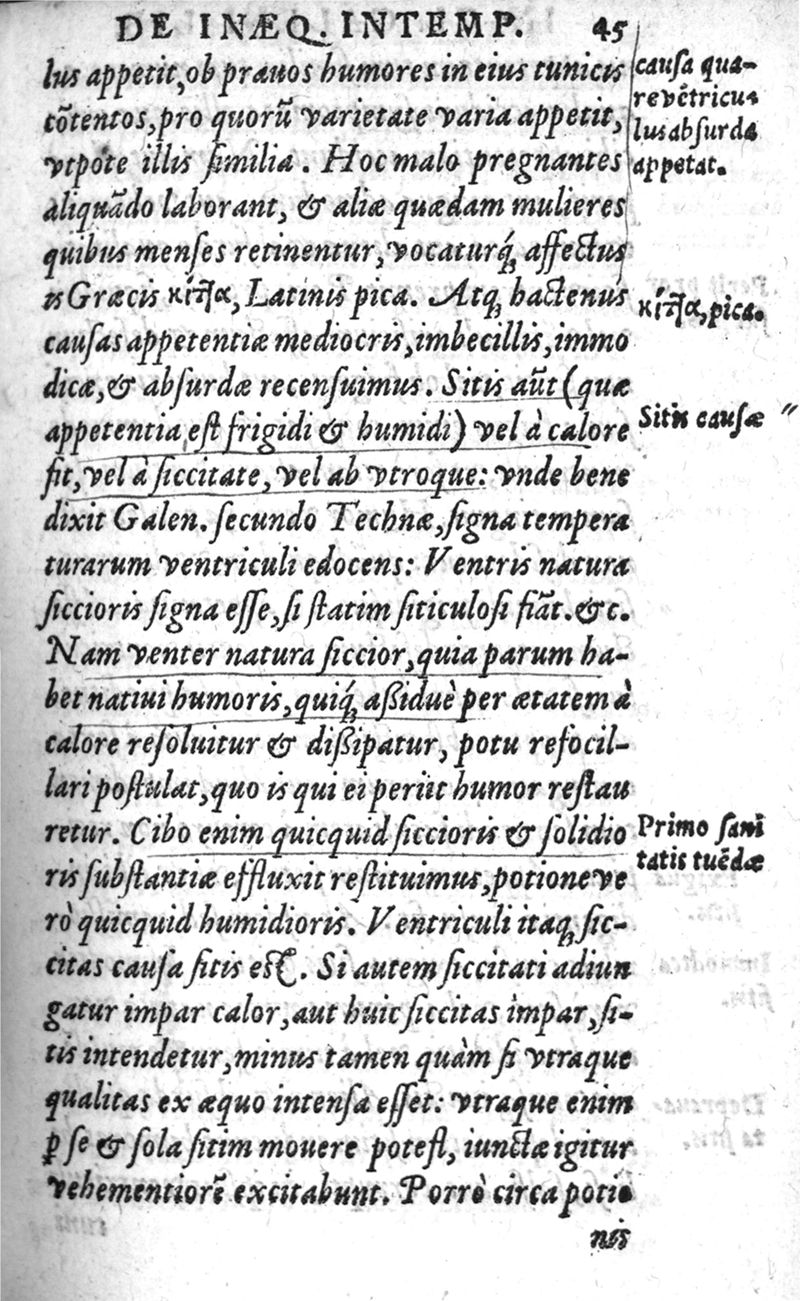 DE INÆQ. INTEMP. 45
lus appetit, ob prauos humores in eius tunicis
cõtentos, pro quorũ varietate varia appetit,
vtpote illis ſimilia. Hoc malo pregnantes
aliquãdo laborant, & aliæ quædam mulieres
quibus menſes retinentur, vocaturq́; affectus
is Græcis κίτ͂ῃα, Latinis pica. Atq; hactenus
cauſas appetentiæ mediocris, imbecillis, immo
dicæ, & abſurdæ recenſuimus. Sitis aũt (quæ
appetentia eſt frigidi & humidi) vel à calore
fit, vel à ſiccitate, vel ab vtroque: vnde bene
dixit Galen. ſecundo Technæ, ſigna tempera
turarum ventriculi edocens: Ventris natura
ſiccioris ſigna eſſe, ſi ſtatim ſiticuloſi fiãt. &c.
Nam venter natura ſiccior, quia parum ha-
bet natiui humoris, quiq́; aßiduè per ætatem à
calore reſoluitur & dißipatur, potu refocil-
lari poſtulat, quo is qui ei periit humor reſtau
retur. Cibo enim quicquid ſiccioris & ſolidio
ris ſubſtantiæ effluxit reſtituimus, potione ve
rò quicquid humidioris. Ventriculi itaq; ſic-
citas cauſa ſitis eſt. Si autem ſiccitati adiun
gatur impar calor, aut huic ſiccitas impar, ſi-
tis intendetur, minus tamen quàm ſi vtraque
qualitas ex æquo intenſa eſſet: vtraque enim
ꝑ ſe & ſola ſitim mouere poteſt, iunctæ igitur
vehementiorẽ excitabunt. Porrò circa potio
nis
cauſa qua-
re vẽtricu-
lus abſurda
appetat.
κίτ͂ῃα, pica.
Sitis cauſæ
Primo ſani
tatis tuẽdæ